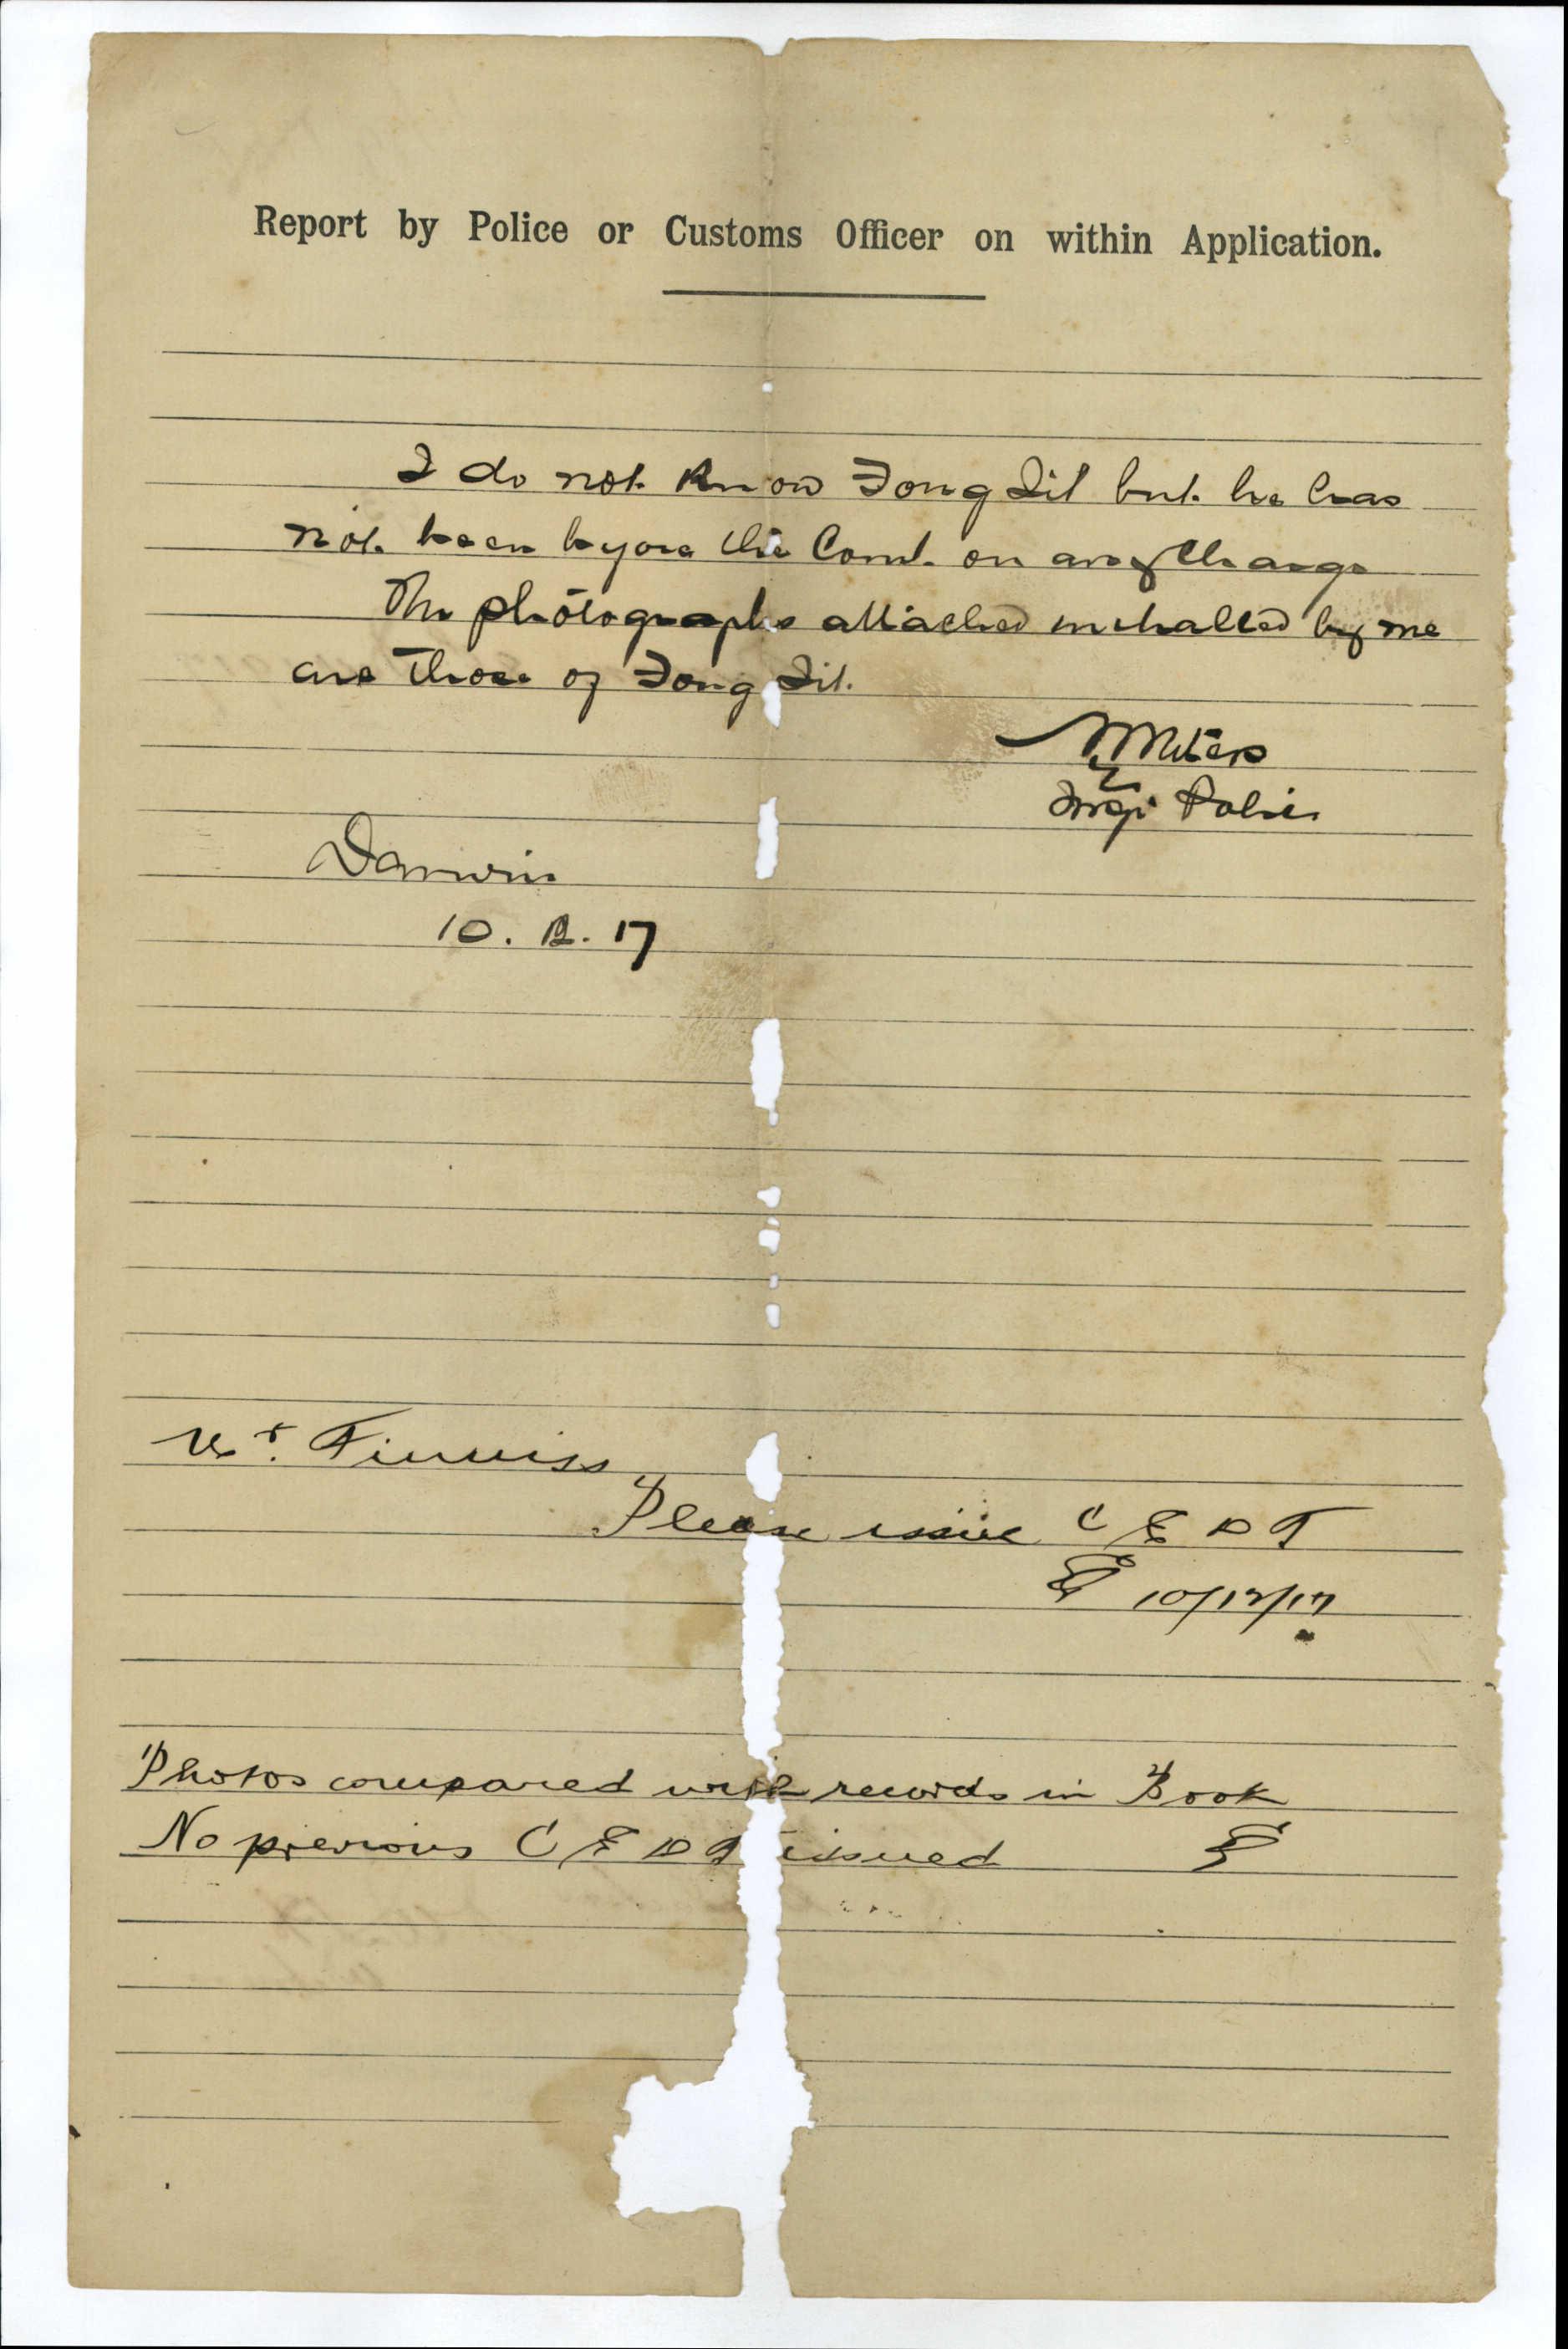 Report by Police or Customs Officer on within Application.
I do not know Fong Sit but he has
not been before the Court on any Charge
The photographs attached initialled by me
are those of Fong Sit.
Waters
Insp Police
Darwin
10. 12. 17
Mr. Finniss
Please issue C E D T
10/12/17
Photos compared with records in Book
No previous C E D T issued